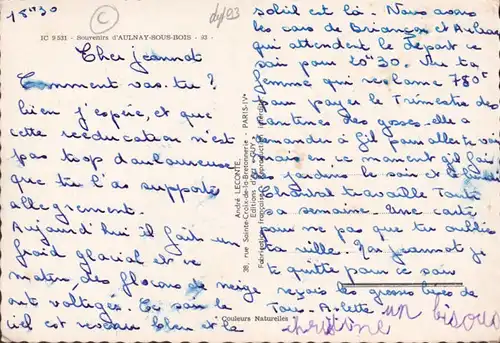 18h30
dy93
IC 9 531 - Souvenirs d'AULNAY-SOUS-BOIS - 93
Cher jeannot
Comment vas-tu ?
bien j'espère, et que
cette rééducation n'est
pas trop douloureuse
que tu l'as supporte
allegrement.
Aujourd'hui il fait un
froid glacial ce
matin, des flocons de neige
ont voltigés. Ce soir le
ciel est nouveau bleu et le
soleil est là. Nous avons
les cars de Briançon et
qui attendent le départ ce
soir pour 20h30. Vu ta
femme qui réclame 780F
pour payer le Trimestre des
cantines des gosses. elle a
à Gil pour aller te voir
mais en ce moment Gil fait
le jardin le soir et
Chantal travaille Toute
sa semaine. Une carte
pour ne pas que tu oublies
ta ville. Mon jeannot je
te quitte pour ce soir
reçois les grosses bises de
Tous - Arlette
un bisous
christine
André LECONTE,
38, rue Sainte-Croix-de-la-Bretonnerie - PARIS-IVe
Editions d'art "GUY"
Fabrication française - Reproduction interdite
Couleurs Naturelles